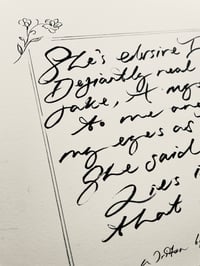 She's elusive I
Defiantly real
fake, A my
to me are
my eyes as
She said
Lies i
that